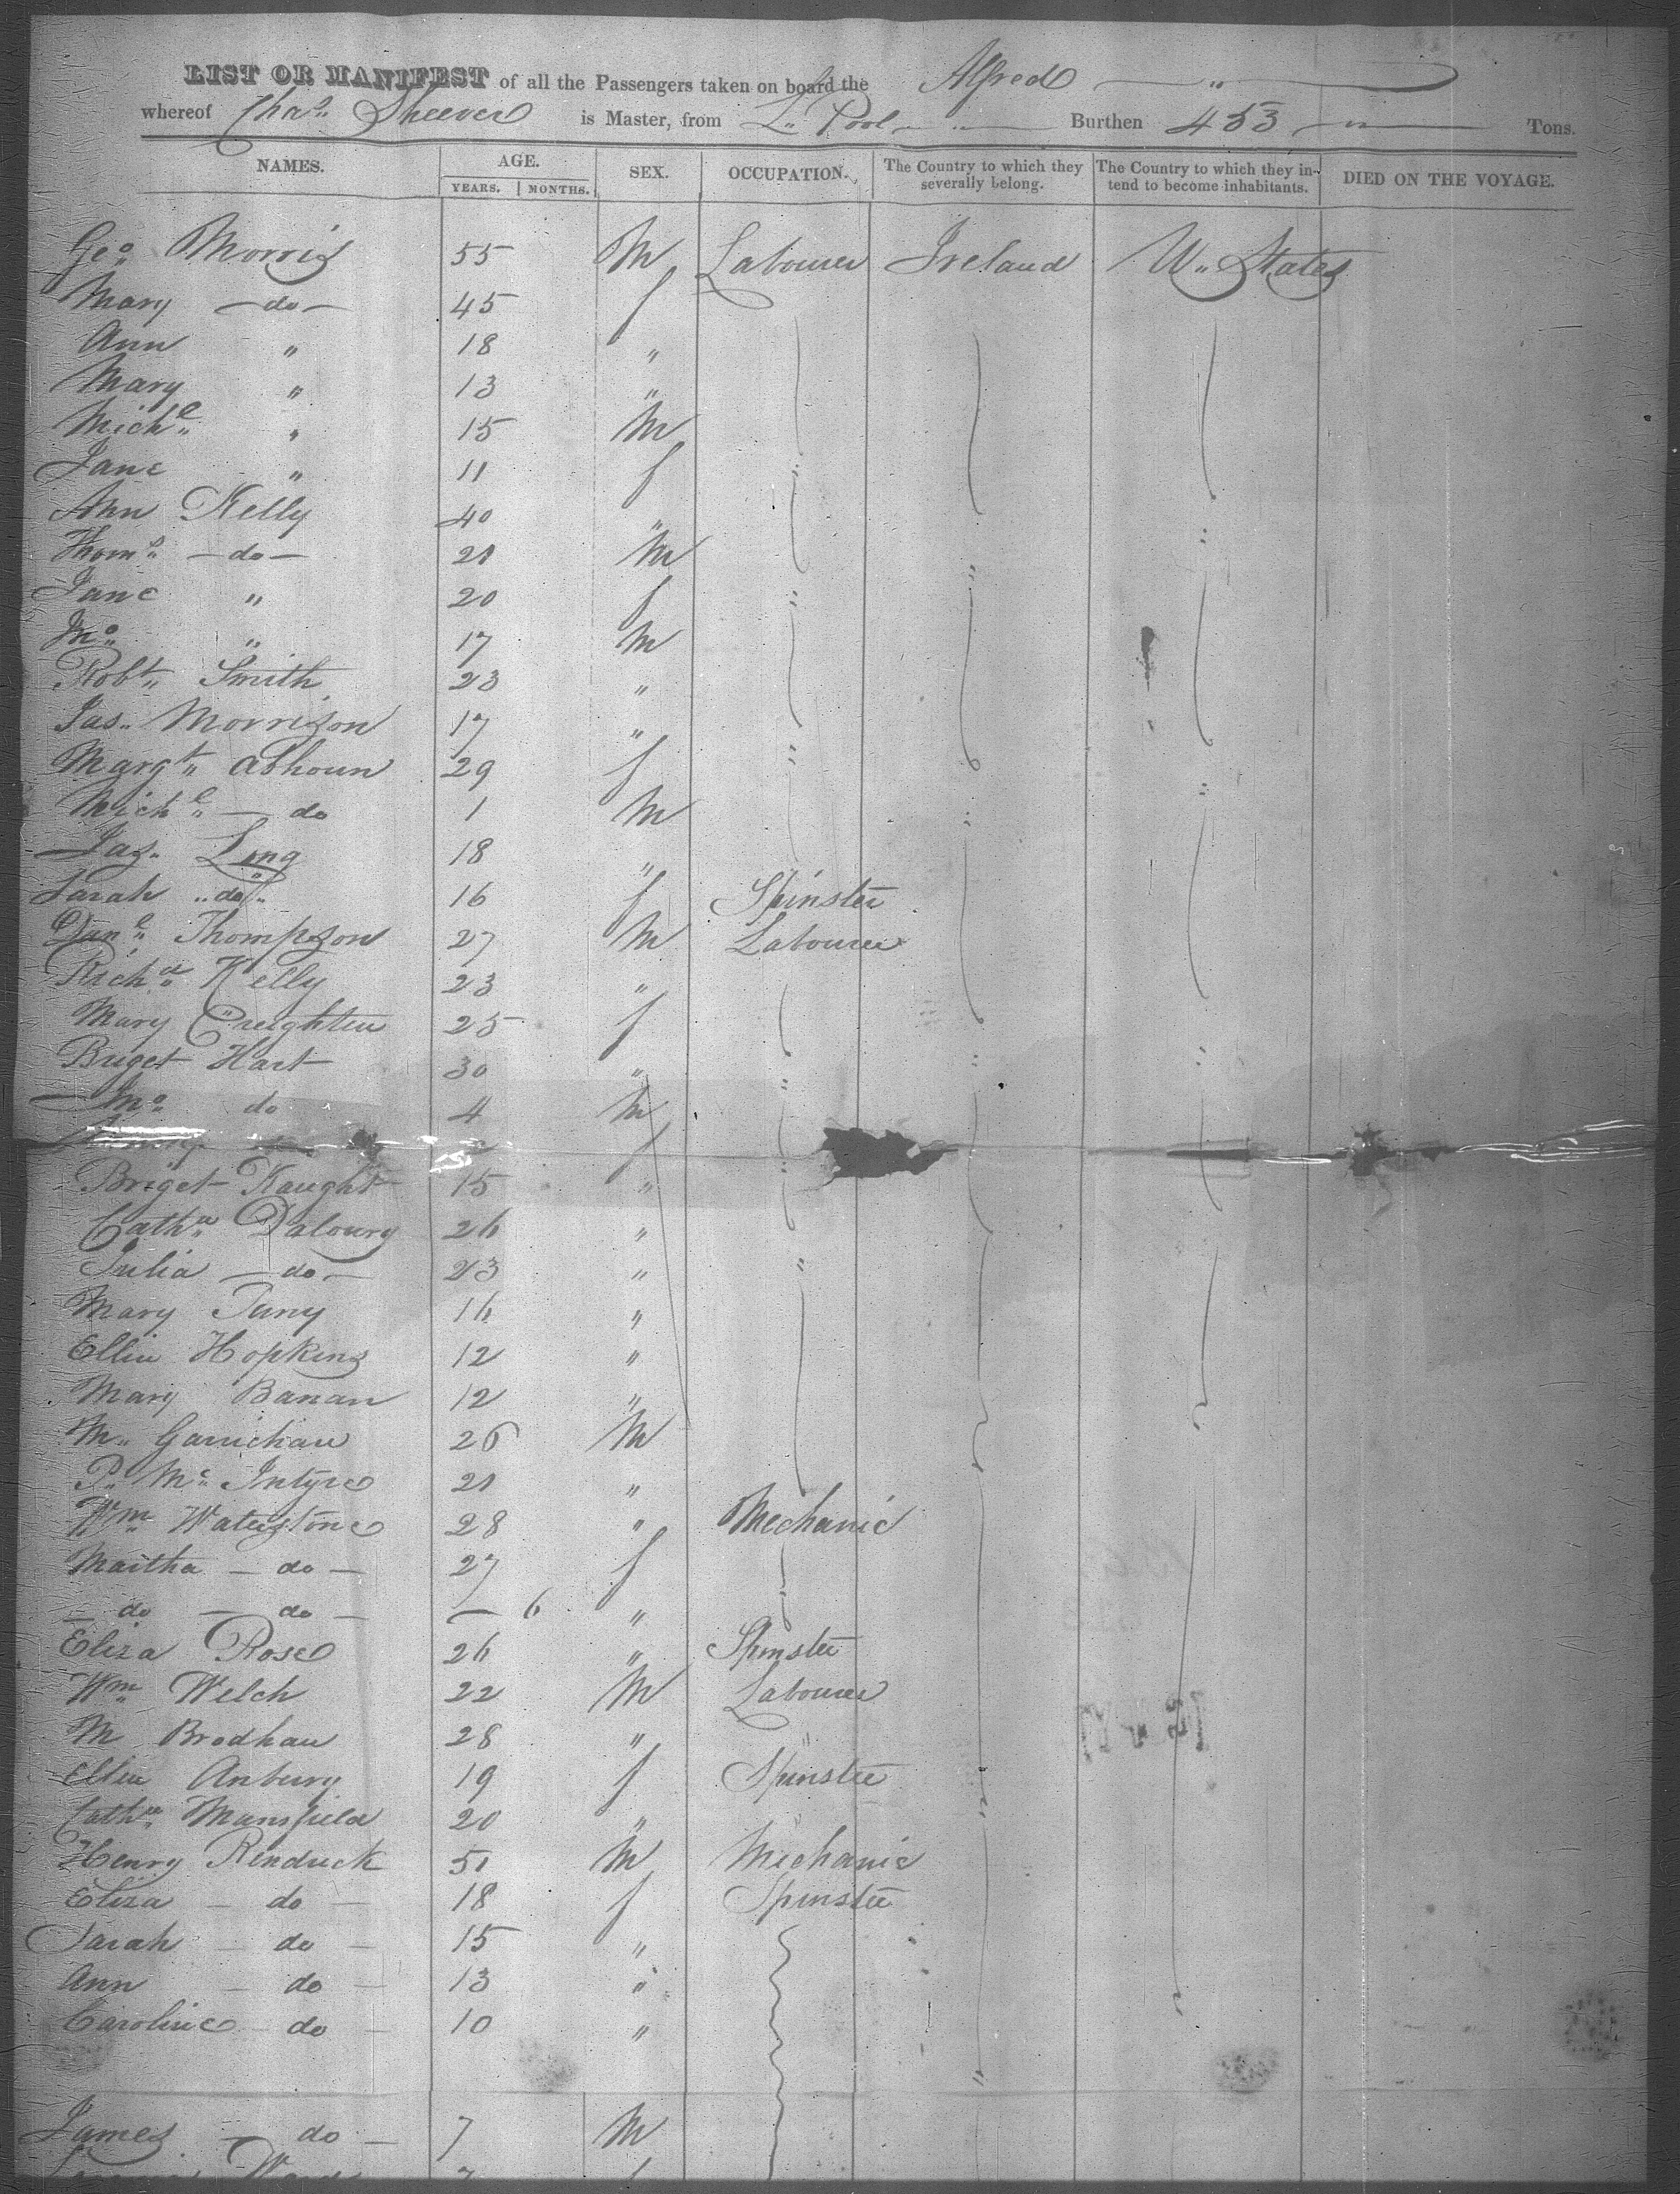 LIST OR MANIFEST of all the Passengers taken on board the Alfred "
whereof Chas. Sheever is Master, from L. Pool " Burthen 453 " Tons.
NAMES. AGE. SEX. OCCUPATION. The Country to which they severally belong. The Country to which they intend to become inhabitants. DIED ON THE VOYAGE.
YEARS. MONTHS.
Geo. Morris 55 M Labourer Ireland U. States
Mary do 45 f
Ann " 18 "
Mary " 13 "
Michl. " 15 M
Jane " 11 f
Ann Kelly 40 "
Thoms. do 21 M
Jane " 20 f
Jno. " 17 M
Robt. Smith 23 "
Jas. Morrison 17 "
Margt. 29 f
Michl. do 1 M
Jas. Long 18 "
Sarah do 16 f Spinster
Danl. Thompson 27 M Labourer
Richd. Kelly 23 "
Mary Creighten 25 f
Briget Hart 30 "
Jno. do 4 M
f
Briget Kaught 15 "
Catha. Daloury 26 "
Julia do 23 "
Mary 16 "
Ellin Hopkins 12 "
Mary Banan 12 "
M. 26 M
P. Mc. Intyre 21 "
Wm. Waterstone 28 " Mechanic
Martha do 27 f
do do 6 "
Eliza Rose 26 " Spinster
Wm. Welch 22 M Labourer
M Brodhan 28 "
Ellen Anbury 19 f Spinster
Catha. Mansfield 20 "
Henry Renduck 51 M Mechanic
Eliza do 18 f Spinster
Sarah do 15 "
Ann do 13 "
Caroline do 10 "
James do 7 M